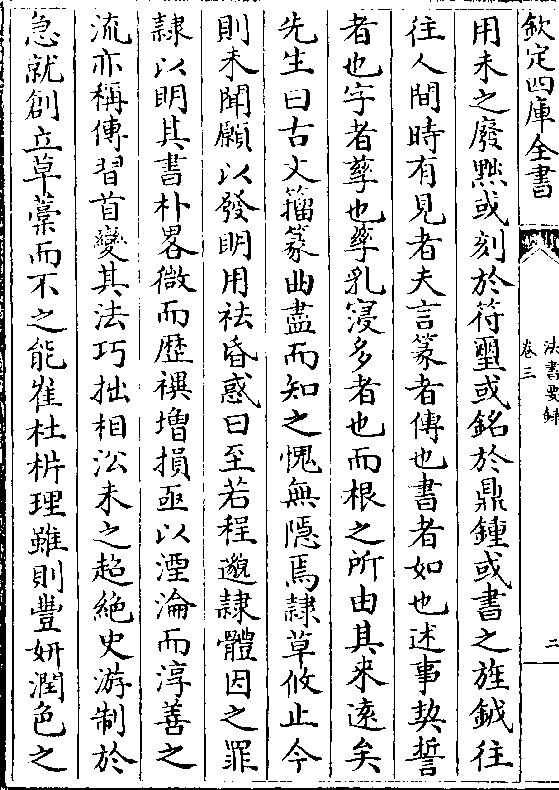 欽定四庫全書
法書要録
卷三
二
用未之廢黜或刻於符璽或銘於鼎鍾或書之旌鉞往
往人間時有見者夫言篆者傳也書者如也述事契誓
者也字者孳也孳乳寖多者也而根之所由其來逺矣
先生曰古文籀篆曲盡而知之愧無隠焉隷草攸止今
則未聞願以發眀用袪昏惑曰至若程邈隷體因之罪
隷以眀其書朴畧微而歴禩増損亟以湮淪而淳善之
流亦稱傳習首變其法巧拙相沿未之超絶史游制於
急就創立草藁而不之能崔杜析理雖則豐妍潤色之